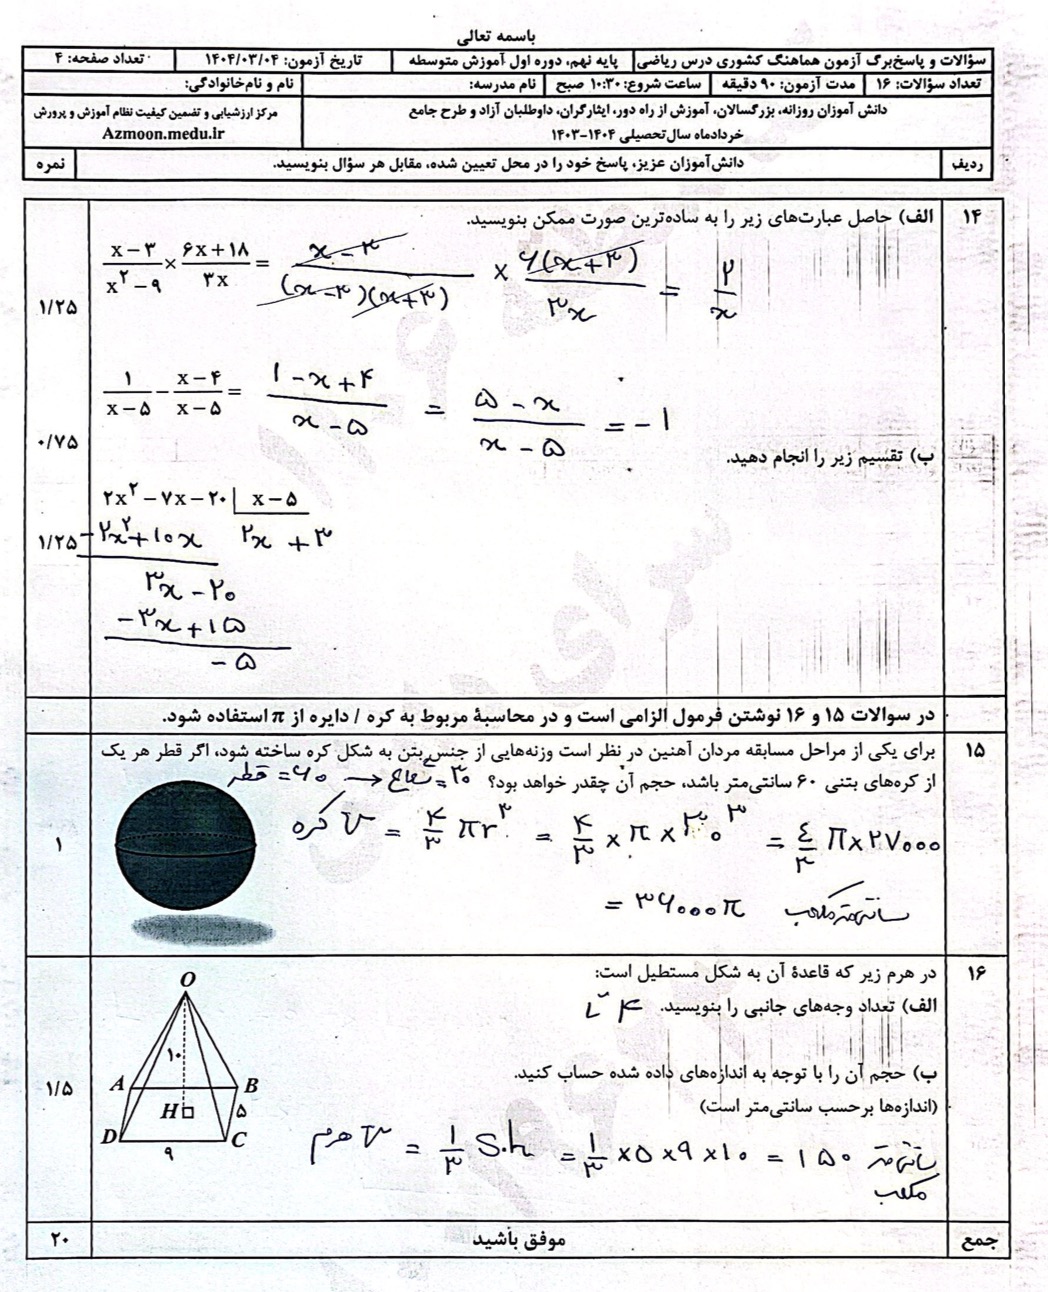 باسمه تعالی
سؤالات و پاسخ‌برگ آزمون هماهنگ کشوری درس ریاضی | پایه نهم، دوره اول آموزش متوسطه | تاریخ آزمون: ۱۴۰۴/۰۳/۰۴ | تعداد صفحه: ۴
تعداد سؤالات: ۱۶ | مدت آزمون: ۹۰ دقیقه | ساعت شروع: ۱۰:۳۰ صبح | نام مدرسه: | نام و نام‌خانوادگی:
دانش آموزان روزانه، بزرگسالان، آموزش از راه دور، ایثارگران، داوطلبان آزاد و طرح جامع
خردادماه سال‌تحصیلی ۱۴۰۴-۱۴۰۳
مرکز ارزشیابی و تضمین کیفیت نظام آموزش و پرورش
Azmoon.medu.ir
ردیف | دانش‌آموزان عزیز، پاسخ خود را در محل تعیین شده، مقابل هر سؤال بنویسید. | نمره
۱۴ الف) حاصل عبارت‌های زیر را به ساده‌ترین صورت ممکن بنویسید.
(x-۳)/(x^۲-۹) × (۶x+۱۸)/(۳x) = (x-۳)/((x-۳)(x+۳)) × ۶(x+۳)/(۳x) = ۲/x
۱/۲۵
۱/(x-۵) - (x-۴)/(x-۵) = (۱-x+۴)/(x-۵) = (۵-x)/(x-۵) = -۱
۰/۷۵
ب) تقسیم زیر را انجام دهید.
۲x^۲-۷x-۲۰ | x-۵
۱/۲۵
-۲x^۲+۱۰x ۲x+۳
۳x-۲۰
-۳x+۱۵
-۵
در سوالات ۱۵ و ۱۶ نوشتن فرمول الزامی است و در محاسبهٔ مربوط به کره / دایره از π استفاده شود.
۱۵ برای یکی از مراحل مسابقه مردان آهنین در نظر است وزنه‌هایی از جنس بتن به شکل کره ساخته شود، اگر قطر هر یک
از کره‌های بتنی ۶۰ سانتی‌متر باشد، حجم آن چقدر خواهد بود؟
قطر = ۶۰ → شعاع = ۳۰
V کره = ۴/۳ πr^۳ = ۴/۳ × π × ۳۰^۳ = ۴/۳ π × ۲۷۰۰۰
۱
= ۳۶۰۰۰π سانتی‌متر مکعب
۱۶ در هرم زیر که قاعدهٔ آن به شکل مستطیل است:
الف) تعداد وجه‌های جانبی را بنویسید. ۴ تا
ب) حجم آن را با توجه به اندازه‌های داده شده حساب کنید.
(اندازه‌ها برحسب سانتی‌متر است)
۱/۵
O
۱۰
A B
H ۵
D C
۹
V هرم = ۱/۳ S.h = ۱/۳ × ۵ × ۹ × ۱۰ = ۱۵۰ سانتی متر
مکعب
جمع | موفق باشید | ۲۰